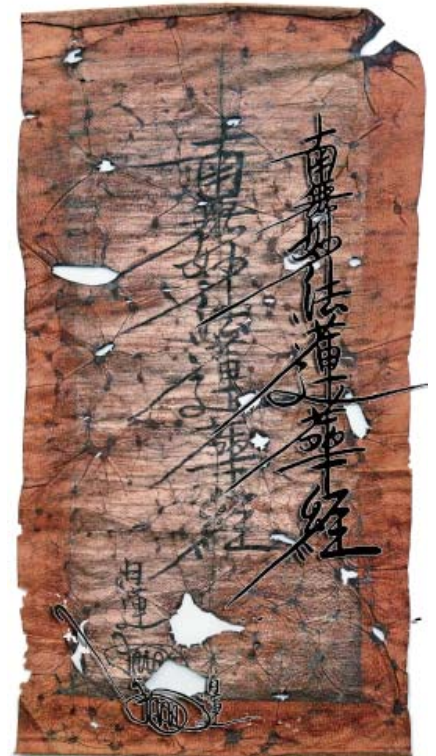 南無妙法蓮華経
南無妙法蓮華経
日蓮
日蓮